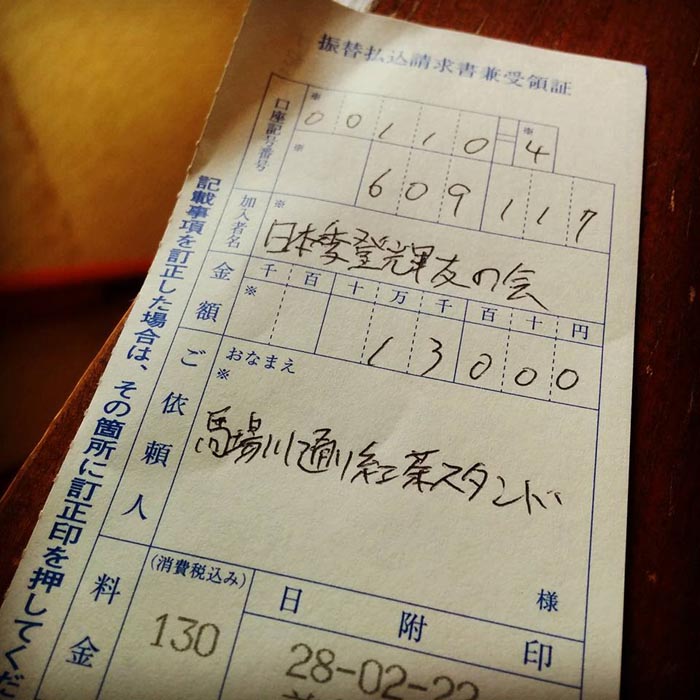 振替払込請求書兼受領証
口座記号番号
※
00110-4
※
※
609117
加入者名
※
日本李登輝友の会
金額
千百十万千百十円
※
13000
ご依頼人
おなまえ
※
馬場川通り紅茶スタンド
様
料金
(消費税込み)
130
日附印
28-02-22
記載事項を訂正した場合は、その箇所に訂正印を押してくだ